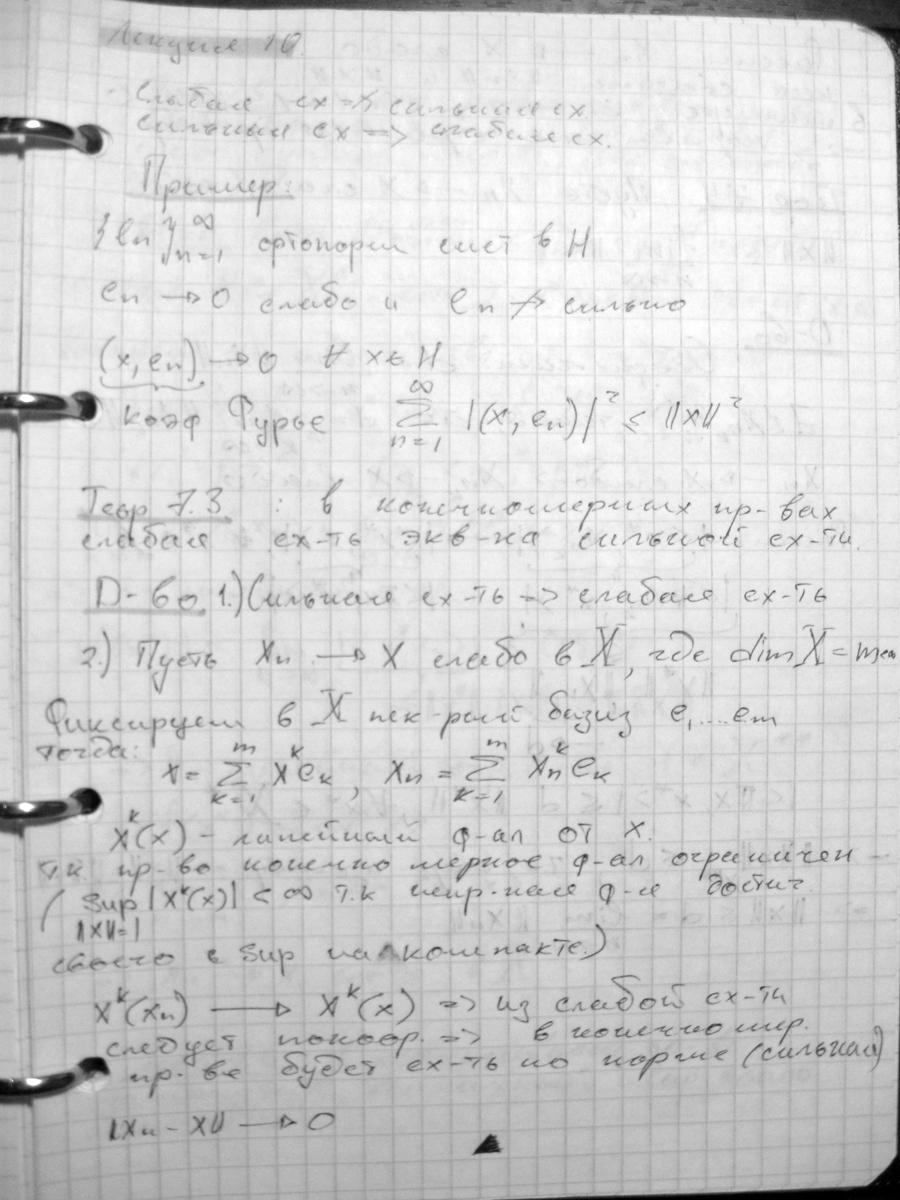 Лекция 10.
Слабая сх ⇏ сильная сх.
Сильная сх => слабая сх.
Пример:
{en}∞n=1 ортонорм сист в H
en → 0 слабо и en ↛ сильно
(x, en) → 0 ∀ x∈H
коэф Фурье ∞∑n=1 |(x, en)|² ≤ ||x||²
Теор 7.3 : в конечномерных пр-вах
слабая сх-ть экв-на сильной сх-ти.
D-во 1.) Сильная сх-ть => слабая сх-ть
2.) Пусть xn → x слабо в X, где dim X = m
Фиксируем в X нек-рый базиз e1....em
тогда:
x = m∑k=1 x^k ek, xn = m∑k=1 xn^k ek
x^k(x) – линейный ф-ал от x.
т.к. пр-во конечно мерное ф-ал ограничен –
( sup |x^k(x)| < ∞ т.к непр-ная ф-я достиг.
||x||=1
своего sup на компакте.)
x^k(xn) → x^k(x) => из слабой сх-ти
следует покоор. => в конечно мер.
пр-ве будет сх-ть по норме (сильная)
||xn – x|| → 0